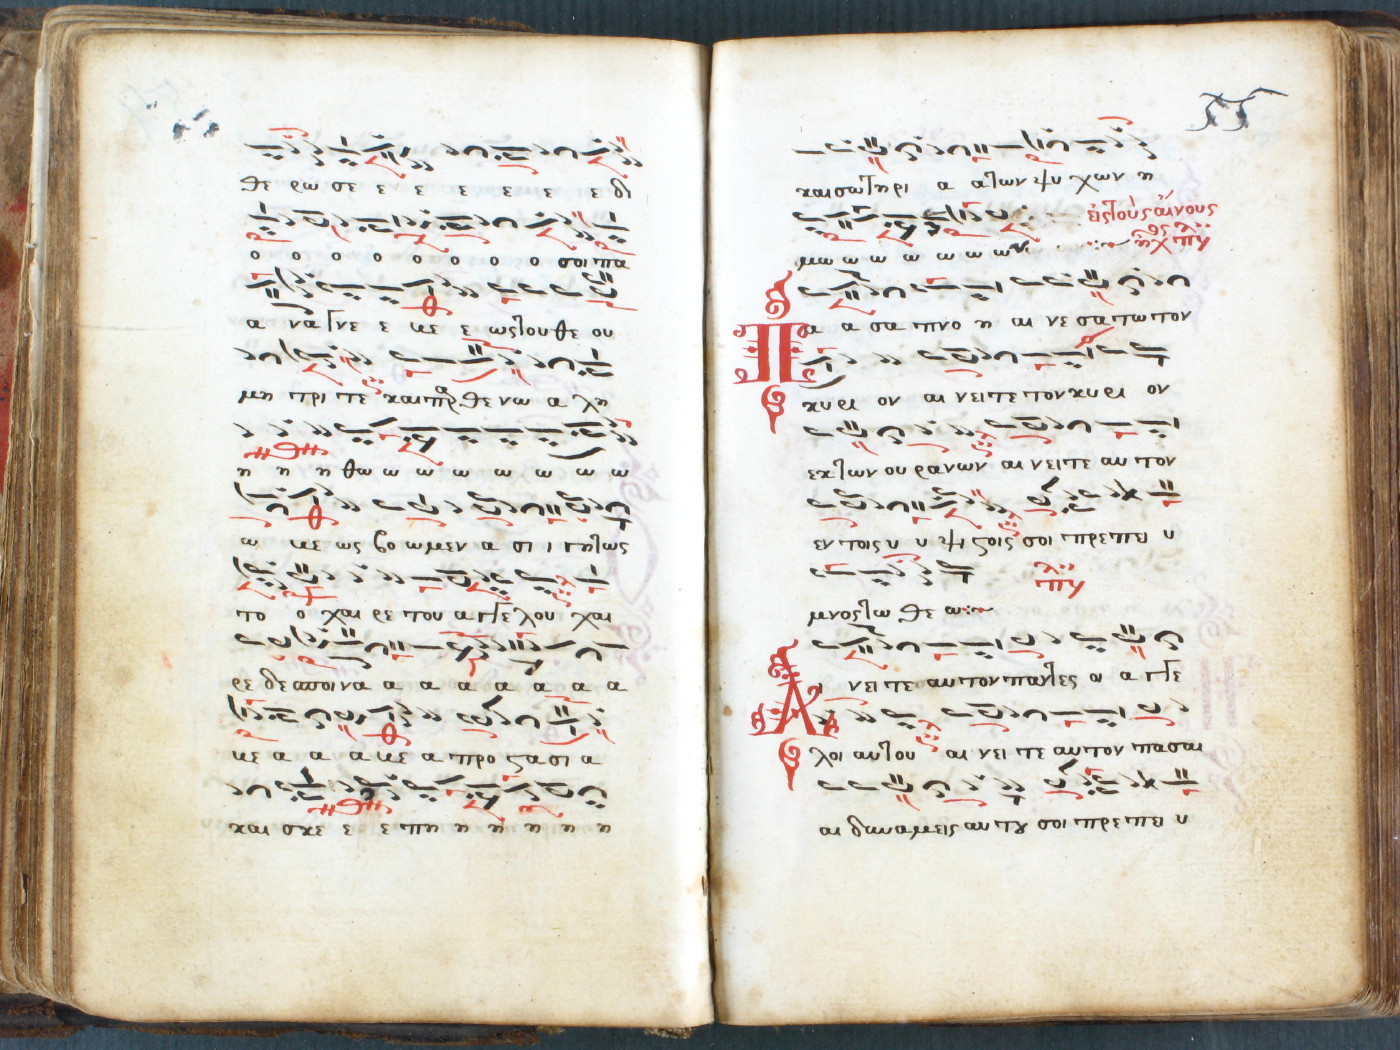 θε ρω σε ε ε ε ε ε ε δι
ο ο ο ο ο ο ο ο σοι πα
α να γνε ε με ε ως του θε ου
μη τρι τε και παρθε νω α χη
η η η θω ω ω ω ω ω ω ω
ω με ως βο ω μεν α σι ι γη τως
το ο χαι ρε του α γγε λου χαι
ρε δε σποι να α α α α α α α
με α α α με α προ ςα σι α
και σκε ε ε πη η η η η η
και σω τη ρι α α των ψυ χων η
μω ω ω ω ω ω ων
εἰς τοὺς αἴνους
ἦχος πλ
Πα α σα πνο η αι νε σα τω τον
κυ ρι ον αι νει τε τον κυ ρι ον
εκ των ου ρα νων αι νει τε αυ τον
εν τοις υ υ ψι ςοις σοι πρε πει υ
μνος τω θε ω
Αι νει τε αυ τον παντες οι α γγε
λοι αυτου αι νει τε αυ τον πασαι
αι δυναμεις αυ του σοι πρε πει υ